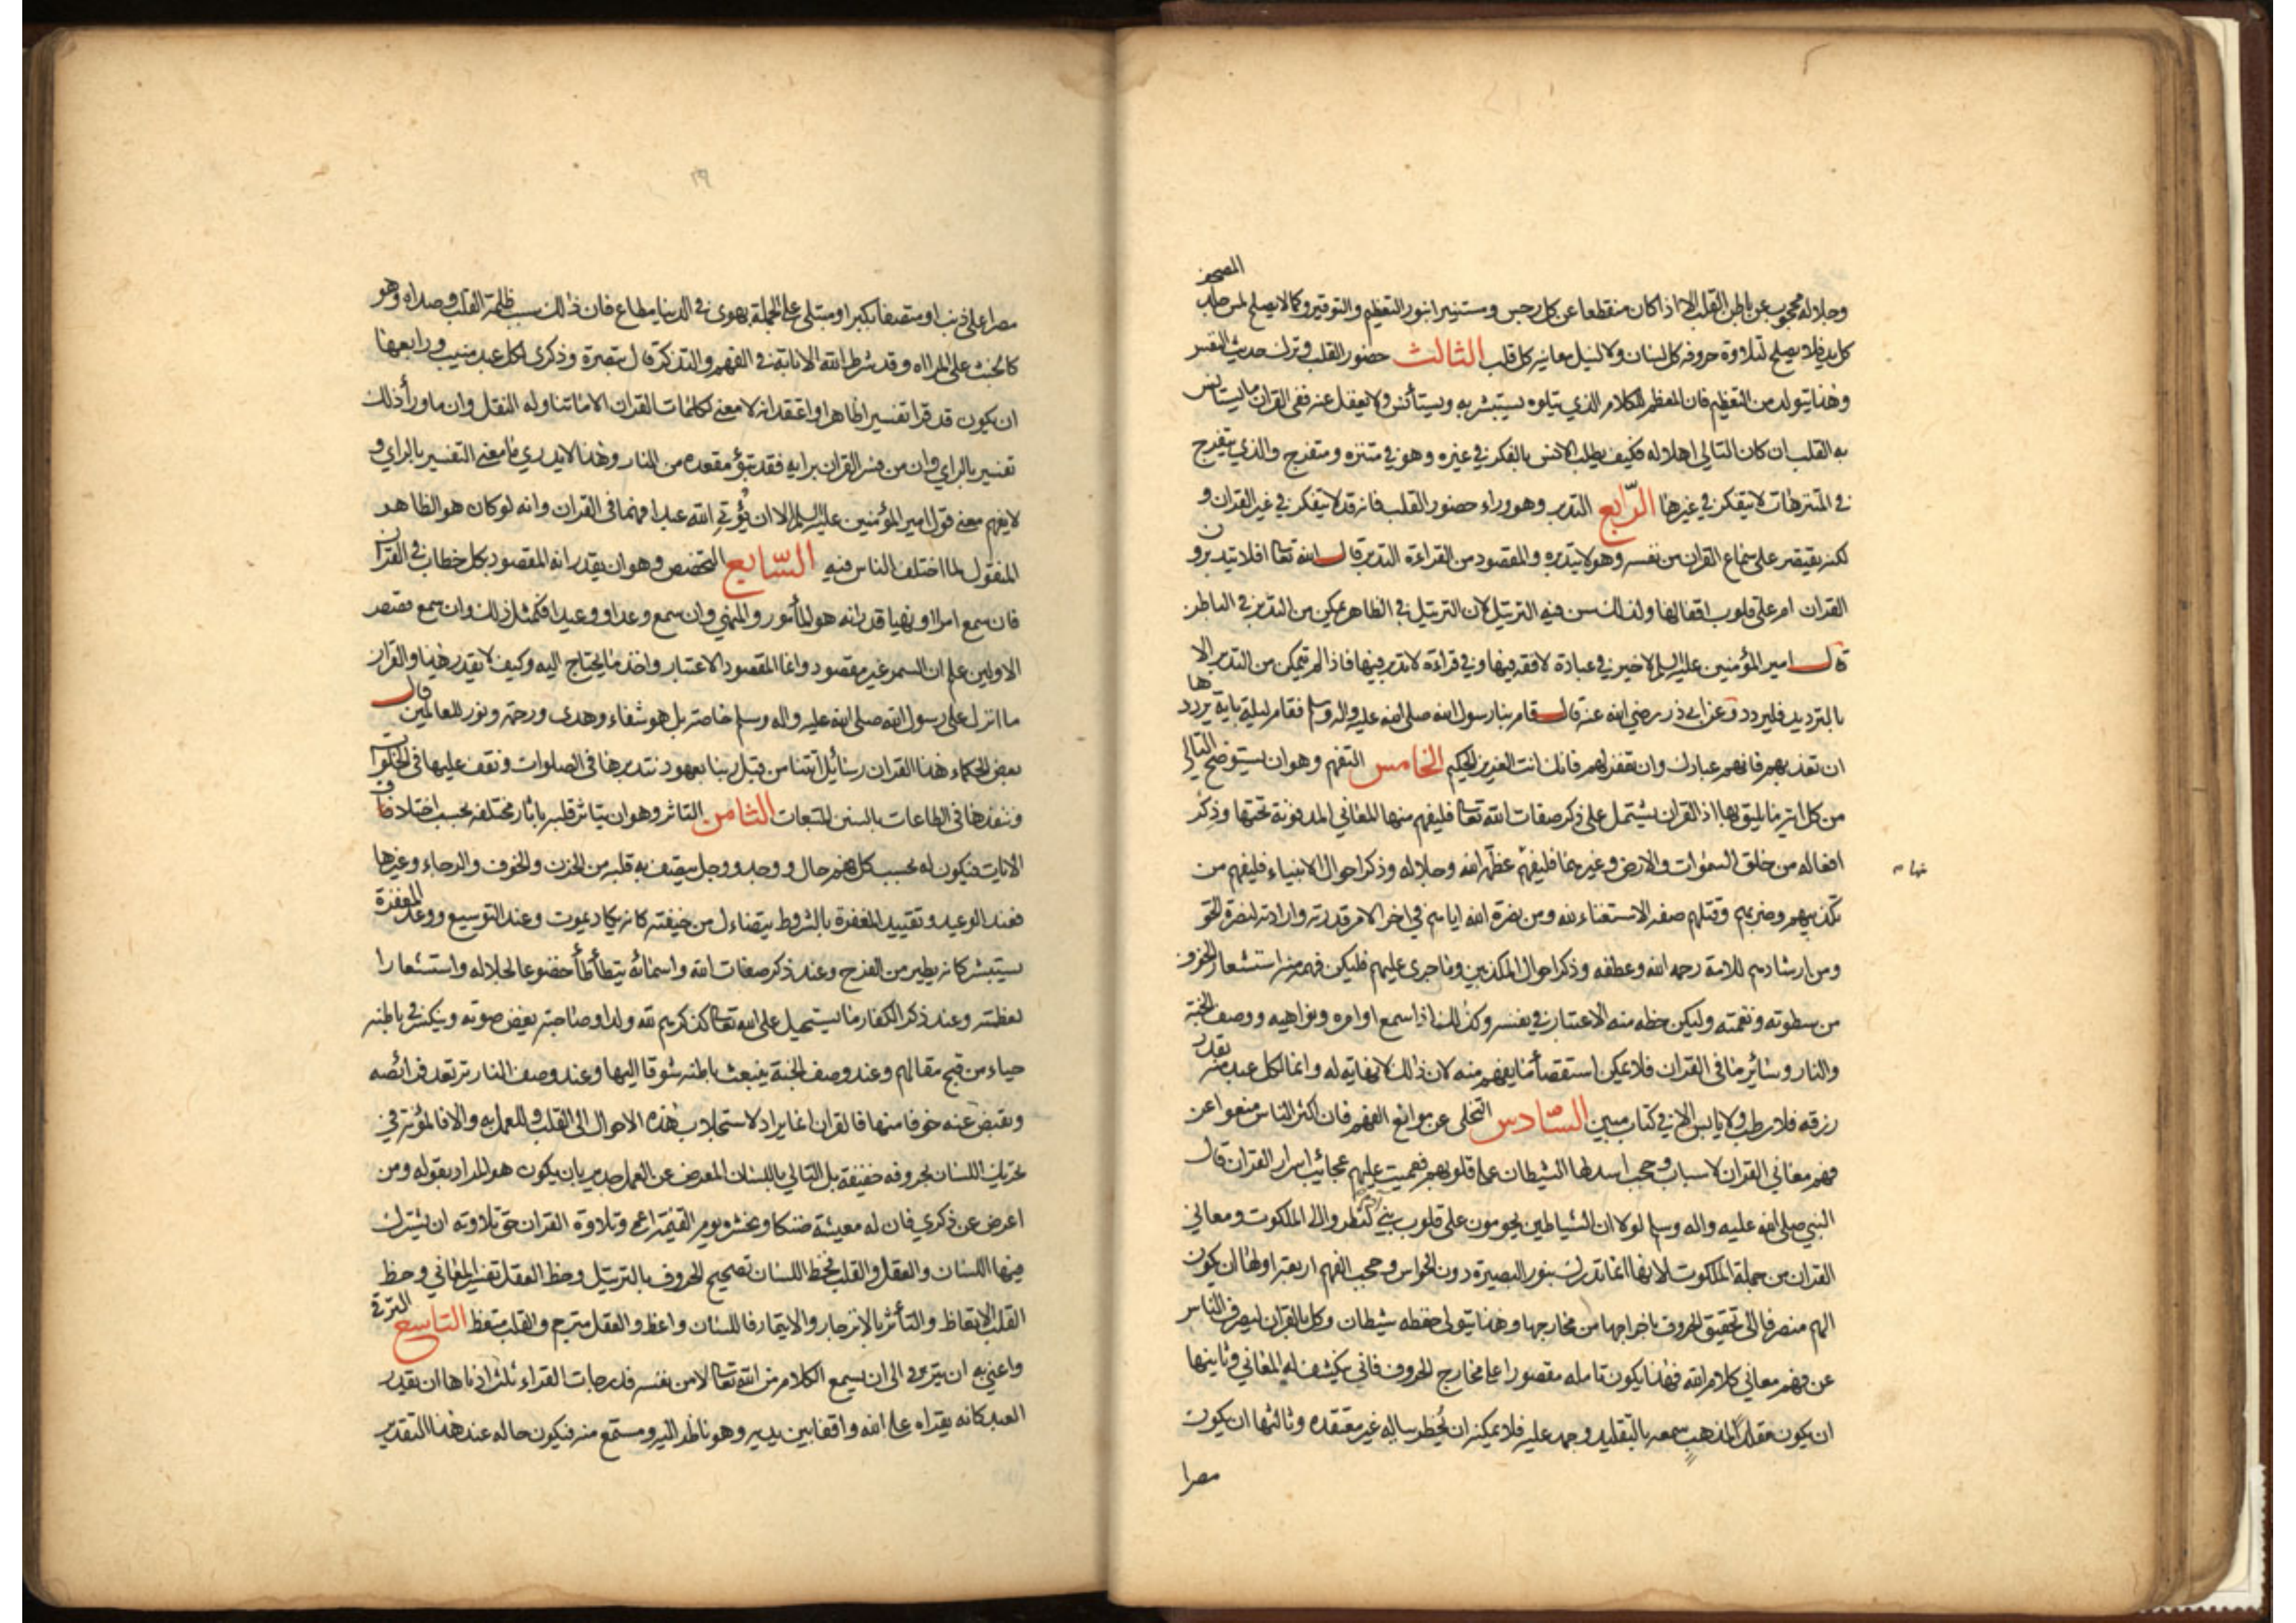 المصحف
وجلاله محجوب عن باطن القلب الا اذا كان منقطعا عن كل رجس ومستنيرا بنور التعظيم والتوقير وكما لا يصلح لمس جلد
كل يد فلا يصلح لتلاوة حروفه كل لسان ولا لنيل معانيه كل قلب الثالث حضور القلب وترك حديث النفس
وهذا يتولد من التعظيم فان المعظم للكلام الذي يتلوه يستبشر به ويستأنس ولا يغفل عنه ففي القران ما يستانس
به القلب ان كان التالي اهلا له فكيف يطلب الانس بالفكر في غيره وهو في متنزه ومتفرج والذي يتفرج
في المتنزهات لا يتفكر في غيرها الرّابع التدبر وهو وراء حضور القلب فانه قد لا يتفكر في غير القران و
لكنه يقتصر على سماع القران من نفسه وهو لا يتدبره والمقصود من القراءة التدبر قال الله تعالى افلا يتدبرون
القران ام على قلوب اقفالها ولذلك سن فيه الترتيل لان الترتيل في الظاهر يمكن من التدبر في الباطن
قال امير المؤمنين عليه السلم لا خير في عبادة لا فقه فيها ولا في قراءة لا تدبر فيها فاذا لم يتمكن من التدبر الا
بالترديد فليردد وعن ابي ذر رضي الله عنه قال قام بنا رسول الله صلى الله عليه واله وسلم فقام ليلة باية يرددها
ان تعذبهم فانهم عبادك وان تغفر لهم فانك انت العزيز الحكيم الخامس التفهم وهو ان يستوضح التالي
من كل اية ما يليق بها اذ القران يشتمل على ذكر صفات الله تعالى فليفهم منها المعاني المدفونة تحتها وذكر
افعاله من خلق السموات والارض وغيرهما فليفهم عظمة الله وجلاله وذكر احوال الانبياء فليفهم من
تكذيبهم وضربهم وقتلهم صفة الاستغناء لله ومن نصرة الله اياهم في اخر الامر قدرته وارادته لنصرة الحق
ومن ارشادهم للامة رحمة الله وعطفه وذكر احوال المكذبين وما جرى عليهم فليكن فهمه منه استشعار الخوف
من سطوته ونقمته وليكن حظه منه الاعتبار في نفسه وكذلك اذا سمع اوامره ونواهيه ووصف الجنة
والنار وسائر ما في القران فلا يمكن استقصأ ما يفهم منه لان ذلك لا نهاية له وانما لكل عبد منه بقدر
رزقه فلا رطب ولا يابس الا في كتاب مبين السّادس التخلى عن موانع الفهم فان اكثر الناس منعوا عن
فهم معاني القران لاسباب وحجب اسدلها الشيطان على قلوبهم فعميت عليهم عجائب اسرار القران قال
النبي صلى الله عليه واله وسلم لولا ان الشياطين يحومون على قلوب بني ادم لنظروا الى الملكوت ومعاني
القران من جملة الملكوت لانها انما تدرك بنور البصيرة دون الحواس وحجب الفهم اربعة اولها ان يكون
الهم منصرفا الى تحقيق الحروف باخراجها من مخارجها وهذا يتولى حفظه شيطان وكل بالقران ليصرف الناس
عن فهم معاني كلام الله فهذا يكون تامله مقصورا على مخارج الحروف فانى يكشف له المعاني وثانيها
ان يكون مقلدا لمذهب سمعه بالتقليد وجمد عليه فلا يمكنه ان يخطر بباله غير معتقده وثالثها ان يكون
مصرا
مصرا على ذنب او متصفا بكبر او مبتلى على الجملة بهوى في الدنيا مطاع فان ذلك سبب ظلمة القلب وصداه وهو
كالخبث على المرااه وقد شرط الله الانابة في الفهم والتذكرة قال تبصرة وذكرى لكل عبد منيب ورابعها
ان يكون قد قرا تفسيرا ظاهرا واعتقد انه لا معنى لكلمات القران الا ما تناوله النقل وان ما ورأ ذلك
تفسير بالراي وان من فسر القران برايه فقد تبؤ مقعده من النار وهذا لا يدري ما معنى التفسير بالراي و
لا يفهم معنى قول امير المؤمنين عليه السلم الا ان يؤتي الله عبدا فهما في القران وانه لو كان هو الظاهر
المنقول لما اختلف الناس فيه السّابع التخصص وهو ان يقدر انه المقصود بكل خطاب في القران
فان سمع امرا او نهيا قدر انه هو المأمور والمنهي وان سمع وعدا او وعيدا فكمثل ذلك وان سمع قصص
الاولين علم ان السمر غير مقصود وانما المقصود الاعتبار واخذ ما يحتاج اليه وكيف لا يقدر هذا والقران
ما انزل على رسول الله صلى الله عليه واله وسلم خاصة بل هو شفاء وهدى ورحمة ونور للعالمين قال
بعض الحكماء هذا القران رسائل اتتنا من قبل ربنا بعهود نتدبرها في الصلوات ونقف عليها في الخلوات
وننفذها في الطاعات بالسنن المتبعات الثامن التاثر وهو ان يتاثر قلبه باثار مختلفة بحسب اختلاف
الايات فيكون له بحسب كل فهم حال ووجد ووجل يتصف به قلبه من الحزن والخوف والرجاء وغيرها
فعند الوعيد وتقييد المغفرة بالشروط يتضاءل من خيفته كانه يكاد يموت وعند التوسيع ووعد المغفرة
يستبشر كانه يطير من الفرح وعند ذكر صفات الله واسمائه يتطأطأ خضوعا لجلاله واستشعارا
لعظمته وعند ذكر الكفار ما يستحيل على الله تعالى كذكرهم لله ولدا وصاحبة يغض صوته وينكسر في باطنه
حياء من قبح مقالهم وعند وصف الجنة ينبعث باطنه شوقا اليها وعند وصف النار ترتعد فرائصه
وتقبض عنه خوفا منها فالقران انما يراد لاستجلاب هذه الاحوال الى القلب وللعمل به والا فالمؤنة في
تحريك اللسان بحروفه خفيفة بل التالي باللسان المعرض عن العمل جدير بان يكون هو المراد بقوله ومن
اعرض عن ذكري فان له معيشة ضنكا ونحشره يوم القيمة اعمى وتلاوة القران حق تلاوته ان يشترك
فيها اللسان والعقل والقلب فحظ اللسان تصحيح الحروف بالترتيل وحظ العقل تفسير المعاني وحظ
القلب الاتعاظ والتأثر بالانزجار والايتمار فاللسان واعظ والعقل مترجم والقلب متعظ التاسع الترقي
واعني به ان يترقى الى ان يسمع الكلام من الله تعالى لا من نفسه فدرجات القراءة ثلث ادناها ان يقدر
العبد كانه يقراه على الله واقفا بين يديه وهو ناظر اليه ومستمع منه فيكون حاله عند هذا التقدير